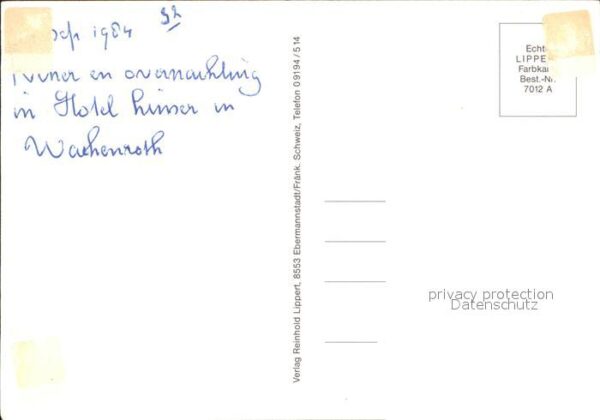 sep 1984
en overnachting
in Hotel in
Wachenroth
Verlag Reinhold Lippert, 8553 Ebermannstadt/Fränk. Schweiz, Telefon 09194/514
Echte
LIPPE
Farbka
Best.-Nr.
7012 A
privacy protection
Datenschutz